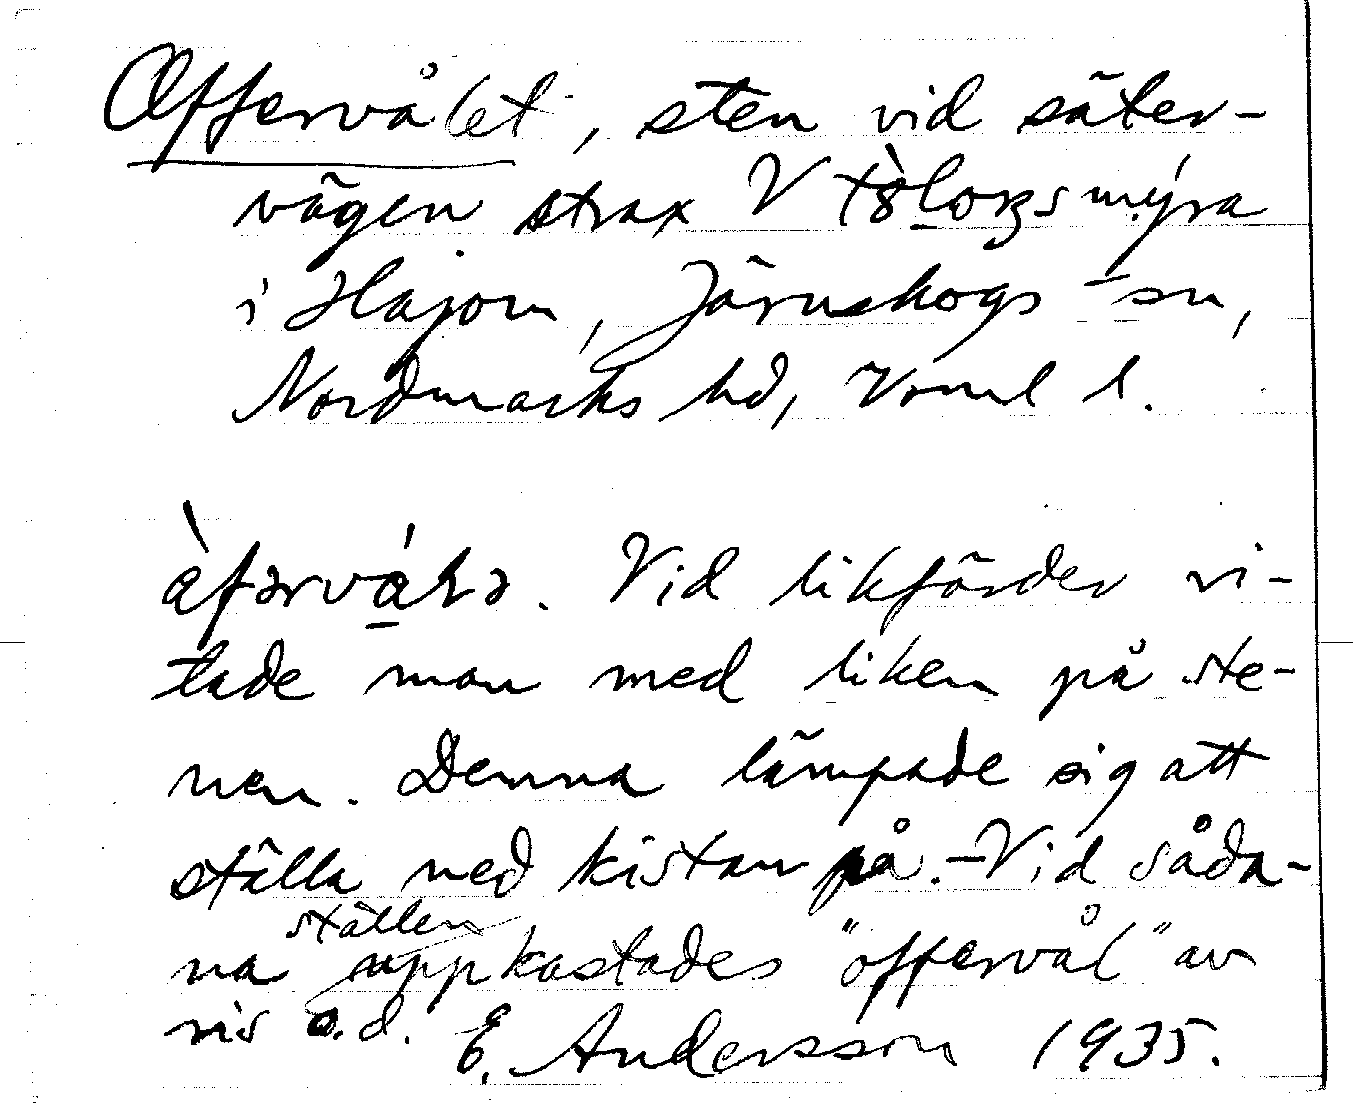 Offervålet, sten vid säter-
vägen strax V
i Håjom, Järnskogs sn,
Nordmarks hd, Vrml l.
Vid likfärder vi-
lade man med liken på ste-
nen. Denna lämpade sig att
ställa ned kistan på. - Vid såda-
na ställen uppkastades "offervål" av
ris o.d. E. Andersson 1935.